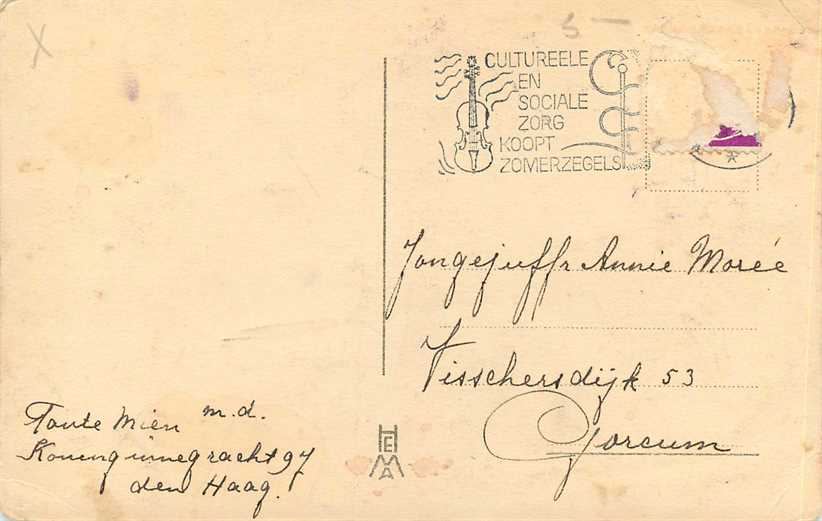 X
5 -
CULTUREELE
EN
SOCIALE
ZORG
KOOPT
ZOMERZEGELS
Jongejuffr Annie Morée
Visschersdijk 53
Gorcum
Tante Mien m.d.
Koninginnegracht 97
den Haag.
HEMA